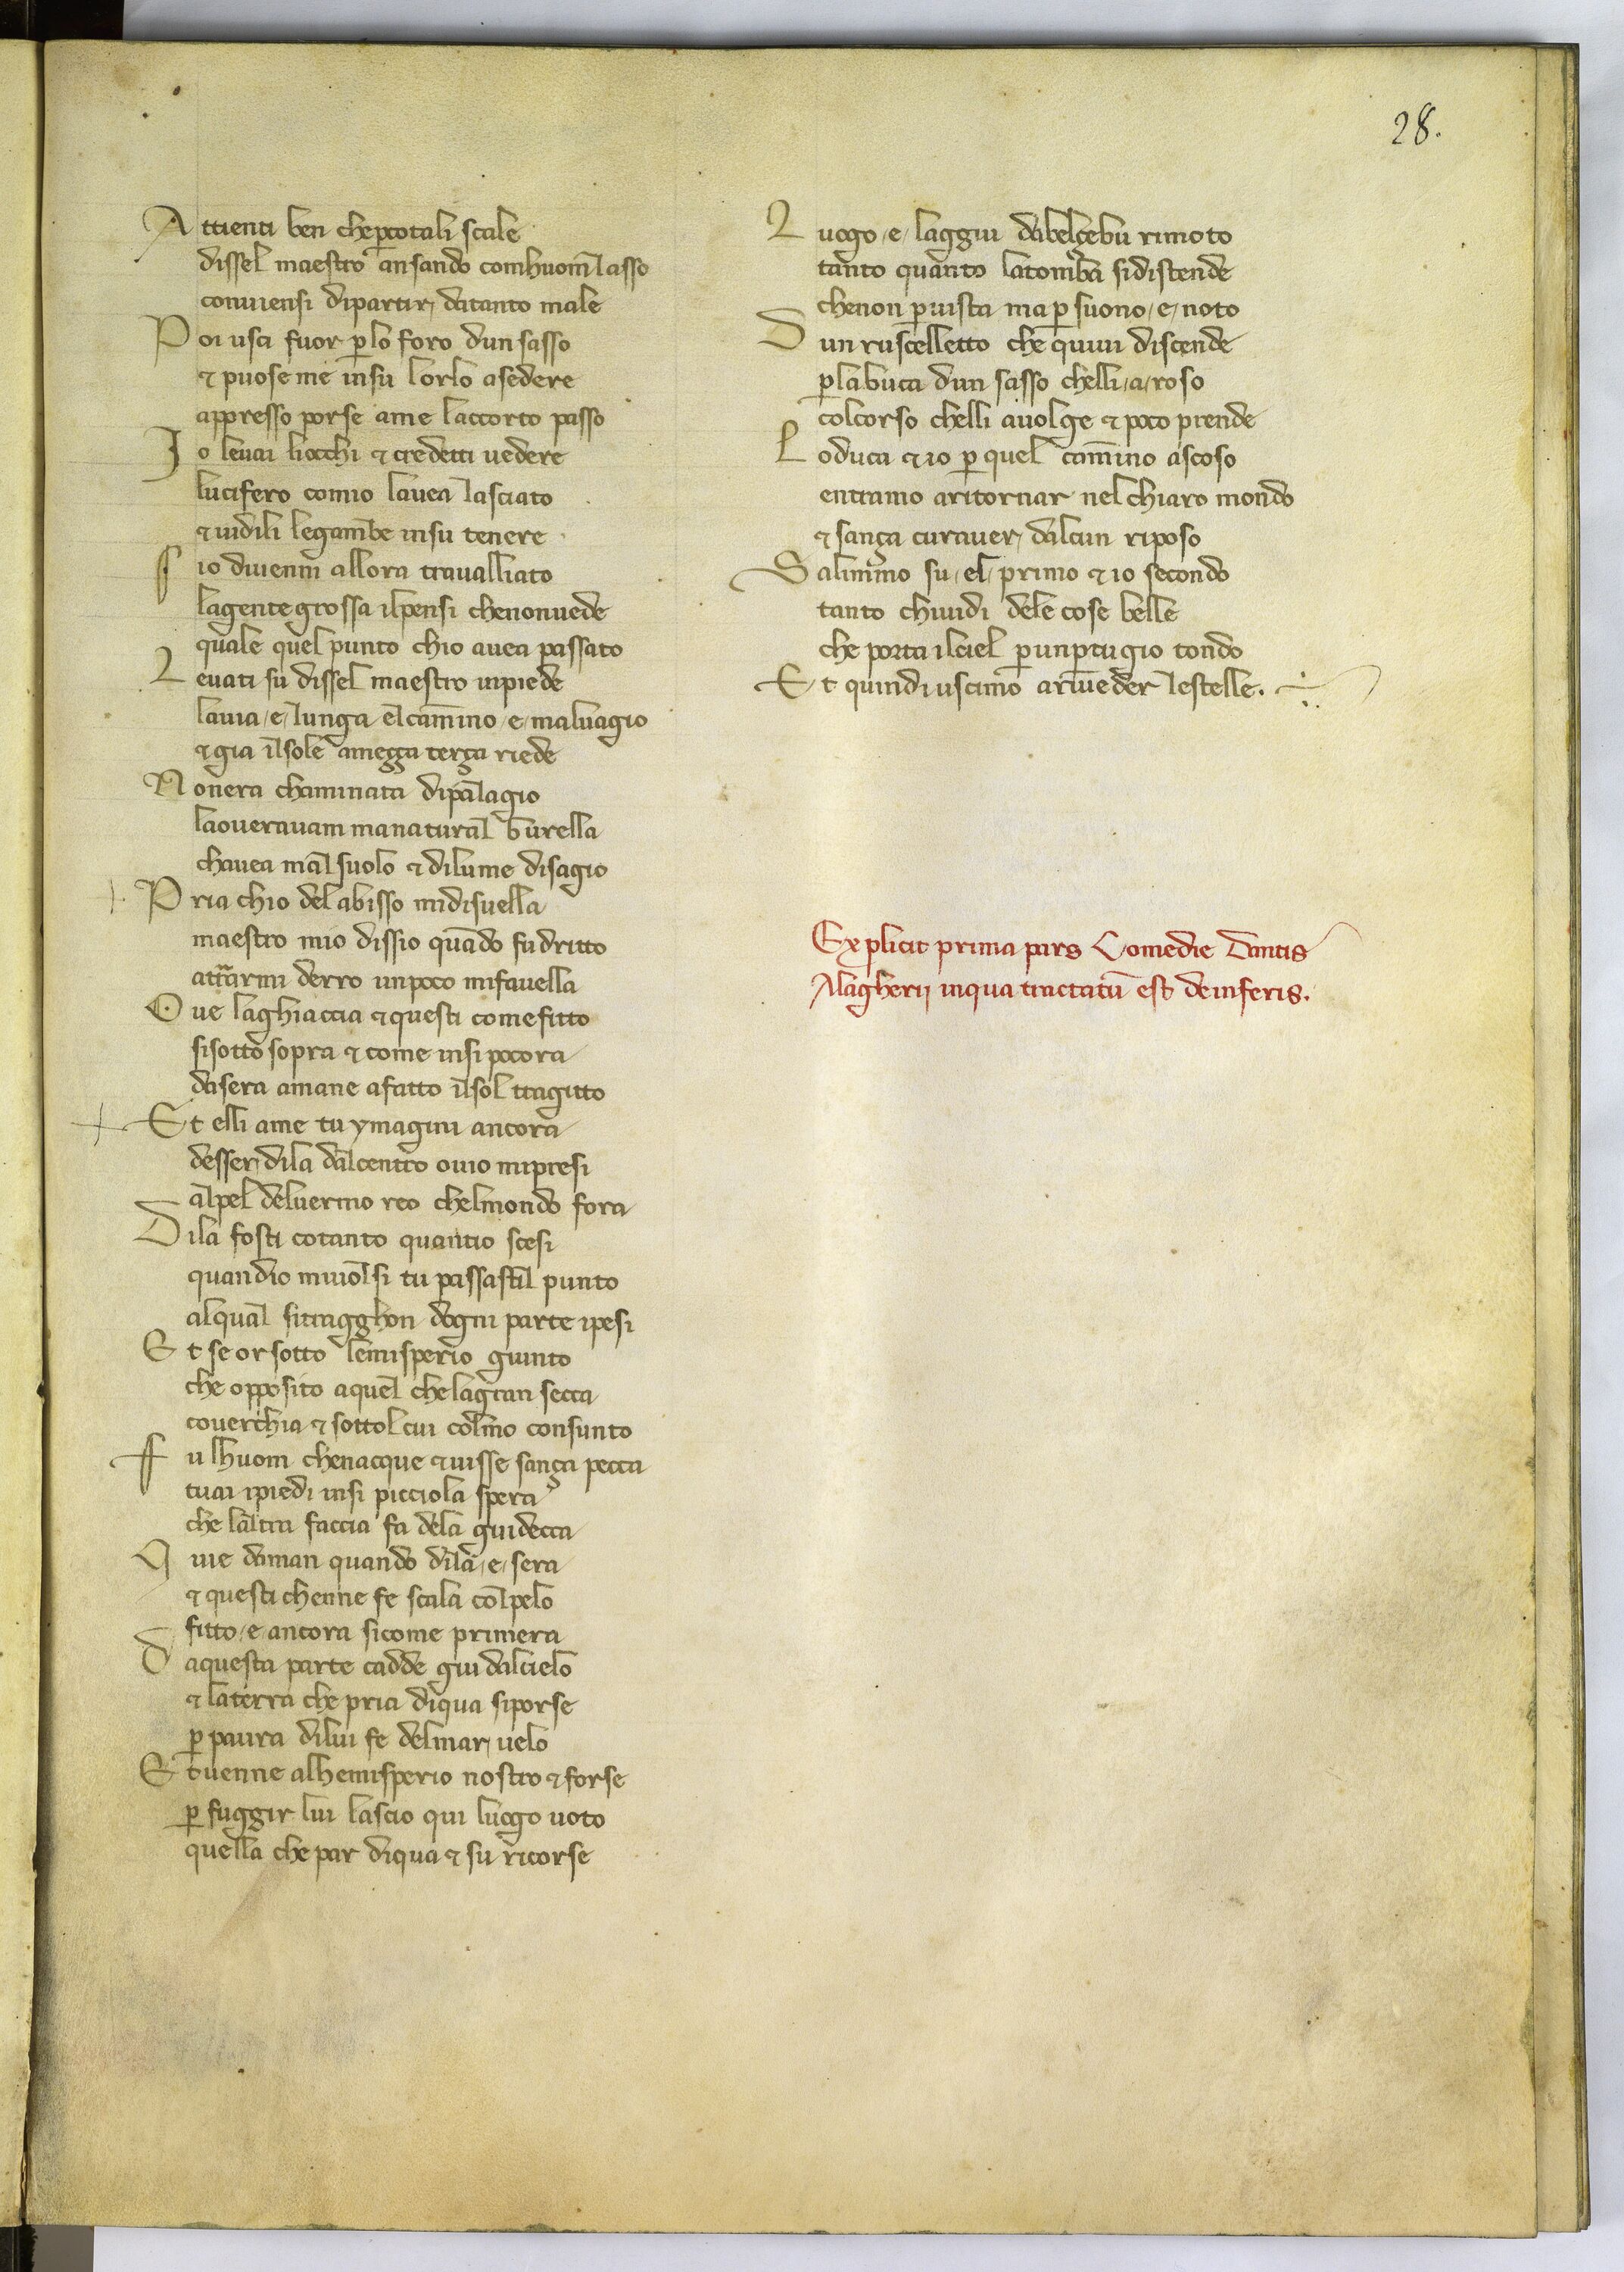 28.
Attienti ben che ꝑ cotali scale
dissel maestro ansando comhuom lasso
conuiensi dipartir, datanto male
Poi usci fuor ꝑlo foro dun sasso
⁊ puose me insu lorlo asedere
appresso porse ame laccorto passo
Io leuai liocchi ⁊ credetti uedere
lucifero comio lauea lasciato
⁊ uidili legambe insu tenere
Sio diuenni allora traualliato
lagente grossa ilpensi chenonuede
quale quel punto chio auea passato
Leuati su dissel maestro inpiede
lauia, e, lunga elcamino, e, maluagio
⁊ gia ilsole ameçça terça riede
Nonera chaminata dipalagio
laouerauam manatural burella
chauea mal suolo ⁊ dilume disagio
Pria chio del abisso midiuella
maestro mio dissio quādo fu dritto
attrarmi derro unpoco mifauella
Oue laghiaccia ⁊ questi comefitto
sisotto sopra ⁊ come insi pocora
dasera amane afatto ilsol tragitto
Et elli ame tu ymagini ancora
desser, dila dalcentro ouio mipresi
alpel deluermo reo chelmondo fora
Dila fosti cotanto quantio scesi
quandio miuolsi tu passastil punto
alqual sitragghon dogni parte ipesi
Et se or sotto lemisperio giunto
che opposito aquel chelagran secca
couerchia ⁊ sottol cui colmo consunto
Fu lhuom chenacque ⁊ uisse sança pecca
tuai ipiedi insi picciola spera
che laltra faccia fa dela giudecca
Quie daman quando dila, e, sera
⁊ questi chenne fe scala colpelo
fitto, e ancora sicome primera
Daquesta parte cadde giu dalcielo
⁊ laterra che pria diqua siporse
ꝑ paura dilui fe delmar, uelo
Et uenne alhemisperio nostro ⁊ forse
ꝑ fuggir lui lascio qui luogo uoto
quella che par diqua ⁊ su ricorse
Luogo, e, laggiu dabelçebu rimoto
tanto quanto latomba sidistende
chenon ꝑ uista ma ꝑ suono, e, noto
Dun ruscelletto che quiui discende
ꝑlabuca dun sasso chelli, a, roso
colcorso chelli auolge ⁊ poco prende
Loduca ⁊ io ꝑ quel camino ascoso
entramo aritornar nel chiaro mondo
⁊ sança curauer, dalcun riposo
Salimmo su, el, primo ⁊ io secondo
tanto chiuidi dele cose belle
che porta ilciel ꝑ unꝑtugio tondo
Et quindi uscimo ariueder lestelle.
Explicit prima pars Comedie Dantis
Alagherij inqua tractatū est deinferis.